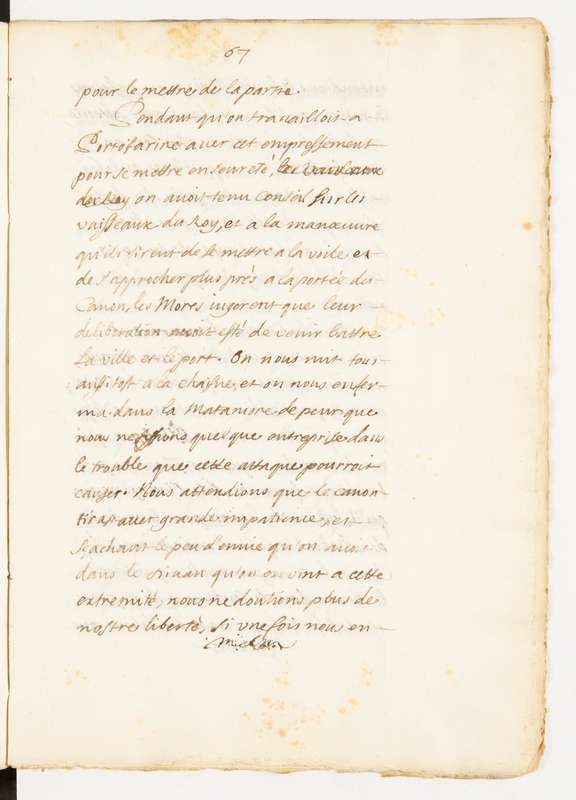 67
pour le mettre de la partie.
Pendant qu'on travailloit a
Portofarine avec cet empressement
pour se mettre en seureté, les vaisseaux
du Roy on avoit tenu Conseil sur les
vaisseaux du Roy, et a la manœuvre
qu'ils firent de se mettre a la voile et
de s'approcher plus prés a la portée du
Canon, les Mores iugerent que leur
deliberation avoit esté de venir battre
la ville et le port. On nous mit tous
aussi tost a la chaisne, et on nous enfer-
ma dans la Matamore de peur que
nous ne fissions quelque entreprise dans
le trouble que cette attaque pourroit
causer. Nous attendions que le canon
tirast avec grande impatience, et
sçachant le peu d'envie qu'on avoit
dans le Divan qu'on en vint a cette
extremité, nous ne doutions plus de
nostre liberté, si une fois nous en-